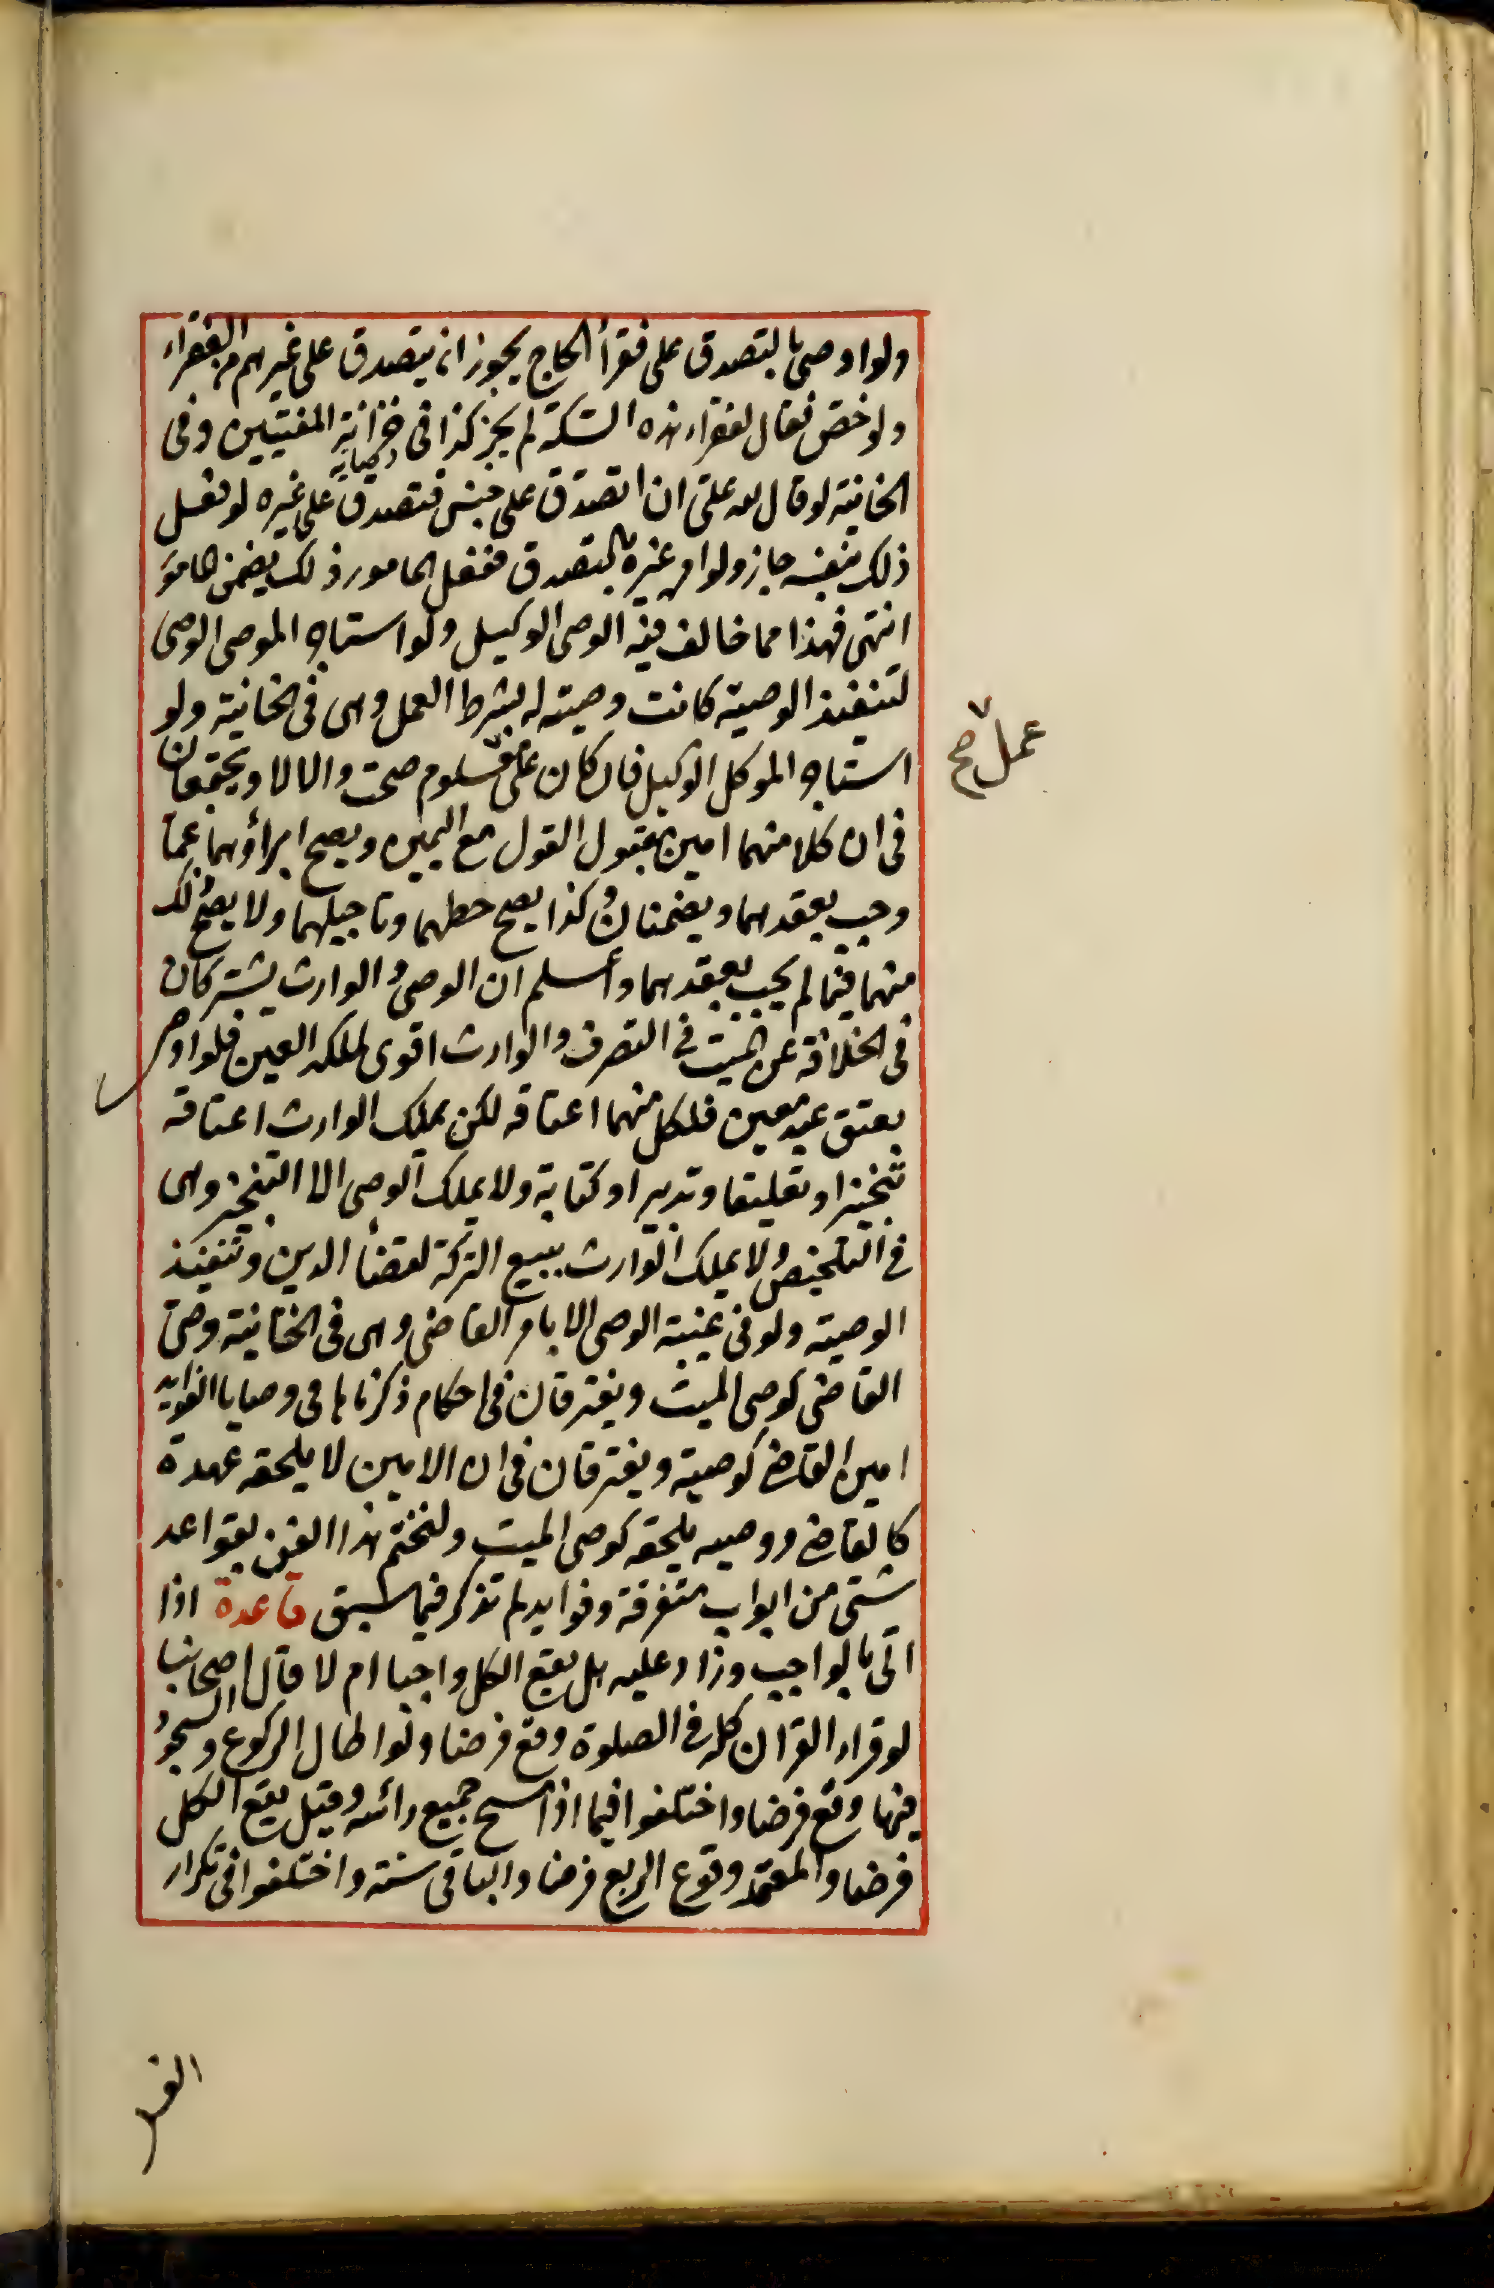 ولو اوصى بالتصدق على فقرأ الحاج يجوز ان يتصدق على غيرهم من الفقراء
ولو خص فقال لفقراء هذه السكة لم يجز كذا فى وصايا خزانة المفتيين وفى
الخانية لو قال لله على ان اتصدق على جنس فتصدق على غيره لو فعل
ذلك بنفسه جاز ولو امر غيره بالتصدق ففعل المامور ذلك يضمن المامور
انتهى فهذا مما خالف فيه الوصى الوكيل ولو استاجر الموصى الوصى
لتنفيذ الوصية كانت وصيته له بشرط العمل وهى فى الخانية ولو
استاجر الموكل الوكيل فان كان على معلوم صحت والا لا ويجتمعان
فى ان كلا منهما امين مقبول القول مع اليمين ويصح ابراؤهما عما
وجب بعقدهما ويضمنان وكذا يصح حطهما وتاجيلهما ولا يصح ذلك
منهما فيما لم يجب بعقدهما واعلم ان الوصى والوارث يشتركان
فى الخلافة عن الميت فى التصرف والوارث اقوى لملكه العين فلو اوصى
بعتق عبد معين فلكل منهما اعتاقه لكن يملك الوارث اعتاقه
تنجيزا وتعليقا وتدبيرا وكتابة ولا يملك الوصى الا التنجيز وهى
فى التلخيص ولا يملك الوارث بيع التركة لقضأ الدين وتنفيذ
الوصية ولو فى غيبة الوصى الا بامر القاضى وهى فى الخانية وصى
القاضى كوصى الميت ويفترقان فى احكام ذكرناها فى وصايا الفوايد
امين القاضى كوصيه ويفترقان فى ان الامين لا يلحقه عهدة
كالقاضى ووصيه يلحقه كوصى الميت ولنختم هذا الفن بقواعد
شتى من ابواب متفرقة وفوايد لم تذكر فيما سبق قاعدة اذا
اتى بالواجب وزاد عليه هل يقع الكل واجبا ام لا قال اصحابنا
لو قراء القرآن كله فى الصلوة وقع فرضا ولو اطال الركوع والسجود
فيها وقع فرضا واختلفوا فيما اذا مسح جميع رائسه وقيل يقع الكل
فرضا والمعتمد وقوع الربع فرضا والباقى سنة واختلفوا فى تكرار
عمل صح
الغسل